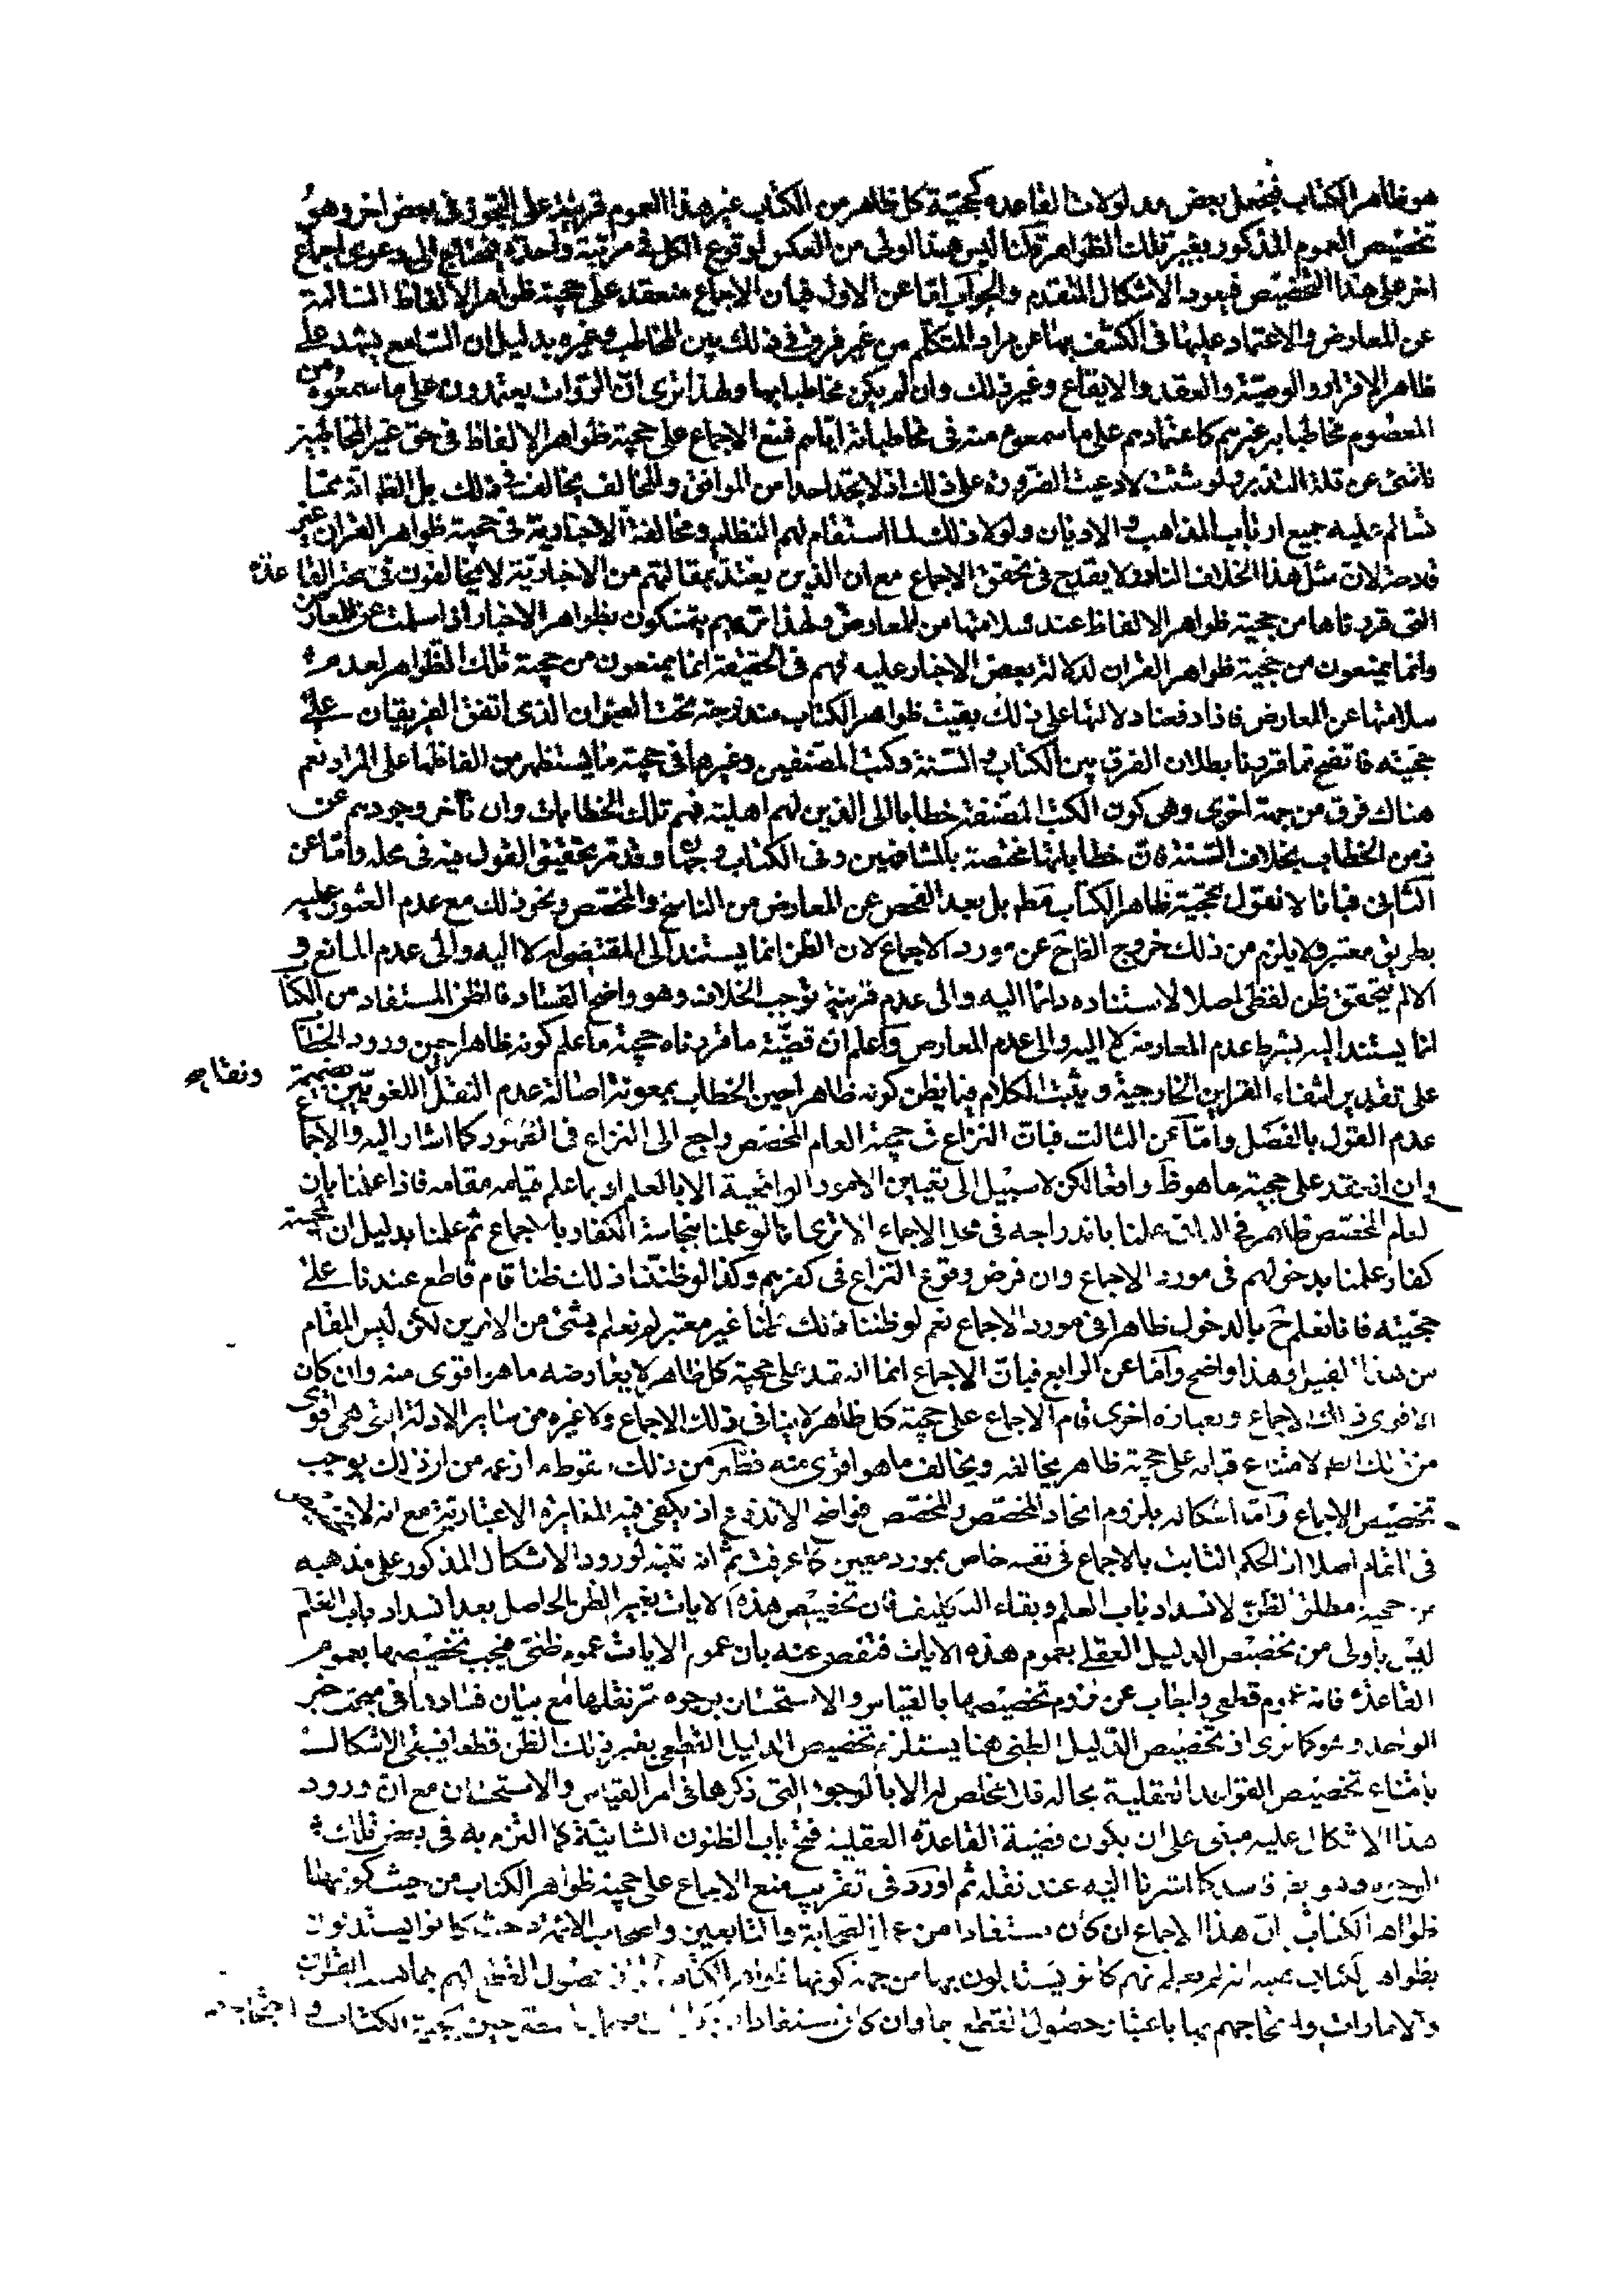 هو ظاهر الكتاب فجعل بعض مدلولات القاعدة كحجية كل ظاهر من الكتاب غير هذا العموم قرينة على التجوز في بعض اخر وهو
تخصيص العموم المذكور بغير تلك الظواهر قلنا ليس هذا اولى من العكس لوقوع الكل في مرتبة واحدة فنحتاج الى دعوى اجماع
اخر على هذا التخصيص فيعود الاشكال المتقدم والجواب اما عن الاول فبان الاجماع منعقد على حجية ظواهر الالفاظ السالمة
عن المعارض والاعتماد عليها في الكشف بها عن مراد المتكلم من غير فرق في ذلك بين المخاطب وغيره بدليل ان السامع يشهد على
ظاهر الاقرار والوصية والعقد والايقاع وغير ذلك وان لم يكن مخاطبا بها ولهذا نرى ان الروات يعتمدون على ما سمعوه من
المعصوم مخاطبا به غيرهم كاعتمادهم على ما سمعوه منه في مخاطباته اياهم فمنع الاجماع على حجية ظواهر الالفاظ في حق غير المخاطبين
ناشئ عن قلة التدبر ولو شئت لادعيت الضرورة على ذلك اذ لا تجد احدا من الموافق والمخالف يخالف في ذلك بل الظ انه مما
تسالم عليه جميع ارباب المذاهب والاديان ولولا ذلك لما استقام لهم النظام ومخالفة الاخبارية في حجية ظواهر القران غير
قادحة لان مثل هذا الخلاف النادر لا يقدح في تحقق الاجماع مع ان الذين يعتد بمقالتهم من الاخبارية لا يخالفون في هذه القاعدة
التي قررناها من حجية ظواهر الالفاظ عند سلامتها من المعارض ولهذا تريهم يتمسكون بظواهر الاخبار اذا سلمت عن المعارض
وانما يمنعون من حجية ظواهر القران لدلالة بعض الاخبار عليه فهم في الحقيقة انما يمنعون من حجية تلك الظواهر لعدم
سلامتها عن المعارض فاذا دفعنا دلالتها على ذلك بقيت ظواهر الكتاب مندرجة تحت العنوان الذي اتفق الفريقان على
حجيته فاتضح مما قررنا بطلان الفرق بين الكتاب والسنة وكتب المصنفين وغيرها في حجية ما يستظهر من الفاظها على المراد نعم
هناك فرق من جهة اخرى وهي كون الكتب المصنفة خطابا الى الذين لهم اهلية فهم تلك الخطابات وان تاخر وجودهم عن
زمن الخطاب بخلاف السنة فان خطاباتها مختصة بالمشافهين وفي الكتاب وجهان وقد مر تحقيق القول فيه في محله واما عن
الثاني فبانا لا نقول بحجية ظاهر الكتاب مط بل بعد الفحص عن المعارض من الناسخ والمخصص ونحو ذلك مع عدم العثور عليه
بطريق معتبر ولا يلزم من ذلك خروج الظاهر ح عن مورد الاجماع لان الظن انما يستند الى المقتضي له لا اليه والى عدم المانع و
الا لم يتحقق ظن لفظي اصلا لاستناده دائما اليه والى عدم قرينة توجب الخلاف وهو واضح الفساد فالظن المستفاد من الكتاب
انما يستند اليه بشرط عدم المعارض لا اليه والى عدم المعارض واعلم ان قضية ما قررناه حجية ما علم كونه ظاهرا حين ورود الخطاب
على تقدير انتفاء القراين الخارجية ويثبت الكلام فيما يظن كونه ظاهرا حين الخطاب بمعونة اصالة عدم النقل ونقل اللغويين بضميمة
عدم القول بالفصل واما عن الثالث فبان النزاع في حجية العام المخصص راجع الى النزاع في الظهور كما اشار اليه والاجماع
وان انعقد على حجية ما هو ظ واقعا لكن لا سبيل الى تعيين الامور الواقعية الا بالعلم او بما علم قيامه مقامه فاذا علمنا بان
العام المخصص ظاهر في الباقي علمنا باندراجه في محل الاجماع الا ترى انا لو علمنا بنجاسة الكفار بالاجماع ثم علمنا بدليل ان المجسمة
كفار علمنا بدخولهم في مورد الاجماع وان فرض وقوع النزاع في كفرهم وكذا لو ظننا ذلك ظنا قام قاطع عندنا على
حجيته فانا نعلم ح بالدخول ظاهرا في مورد الاجماع نعم لو ظننا ذلك ظنا غير معتبر لم نعلم بشئ من الامرين لكن ليس المقام
من هذا القبيل وهذا واضح واما عن الرابع فبان الاجماع انما انعقد على حجية كل ظاهر لا يعارضه ما هو اقوى منه وان كان
الاقوى ذلك الاجماع وبعبارة اخرى قام الاجماع على حجية كل ظاهر لا ينافي ذلك الاجماع ولا غيره من ساير الادلة التي هي اقوى
من ذلك الظ لامتناع قيامه على حجية ظاهر يخالفه ويخالف ما هو اقوى منه فظهر من ذلك سقوط ما زعمه من ان ذلك يوجب
تخصيص الاجماع واما اشكاله بلزوم اتحاد المخصص والمخصص فواضح الاندفاع اذ يكفي فيه المغايرة الاعتبارية مع انه لا تخصيص
في المقام اصلا اذ الحكم الثابت بالاجماع في نفسه خاص بمورد معين كما عرفت ثم انه تنبه لورود الاشكال المذكور على مذهبه
من حجية مطلق الظن لانسداد باب العلم وبقاء التكليف فان تخصيص هذه الايات بغير الظن الحاصل بعد انسداد باب العلم
ليس باولى من تخصيص الدليل العقلي بعموم هذه الايات فتفصى عنه بان عموم الايات عموم ظني فيجب تخصيصها بعموم
القاعدة فانه عموم قطعي واجاب عن لزوم تخصيصها بالقياس والاستحسان بوجوه مر نقلها مع بيان فسادها في مبحث خبر
الواحد وهو كما ترى اذ تخصيص الدليل الظني هنا يستلزم تخصيص الدليل القطعي بغير ذلك الظن قطعا فيبقى الاشكال
بامتناع تخصيص القواعد العقلية بحاله فلا مخلص له الا بالوجوه التي ذكرها في امر القياس والاستحسان مع ان ورود
هذا الاشكال عليه مبني على ان يكون قضية القاعدة العقلية فتح باب الظنون الشانية كما التزم به في بعض تلك
الوجوه وهو فاسد كما اشرنا اليه عند نقله ثم اورد في تقريب منع الاجماع على حجية ظواهر الكتاب من حيث كونها
ظواهر الكتاب ان هذا الاجماع ان كان مستفادا من عمل الصحابة والتابعين واصحاب الائمة حيث كانوا يستدلون
بظواهر الكتاب ففيه انه لم يعلم انهم كانوا يستدلون بها من جهة كونها ظواهر الكتاب حصول القطع لهم بها القراين
والامارات واحتجاجهم بها باعتبار حصول القطع بها وان كان مستفادا بحجية الكتاب و احتجاجهم